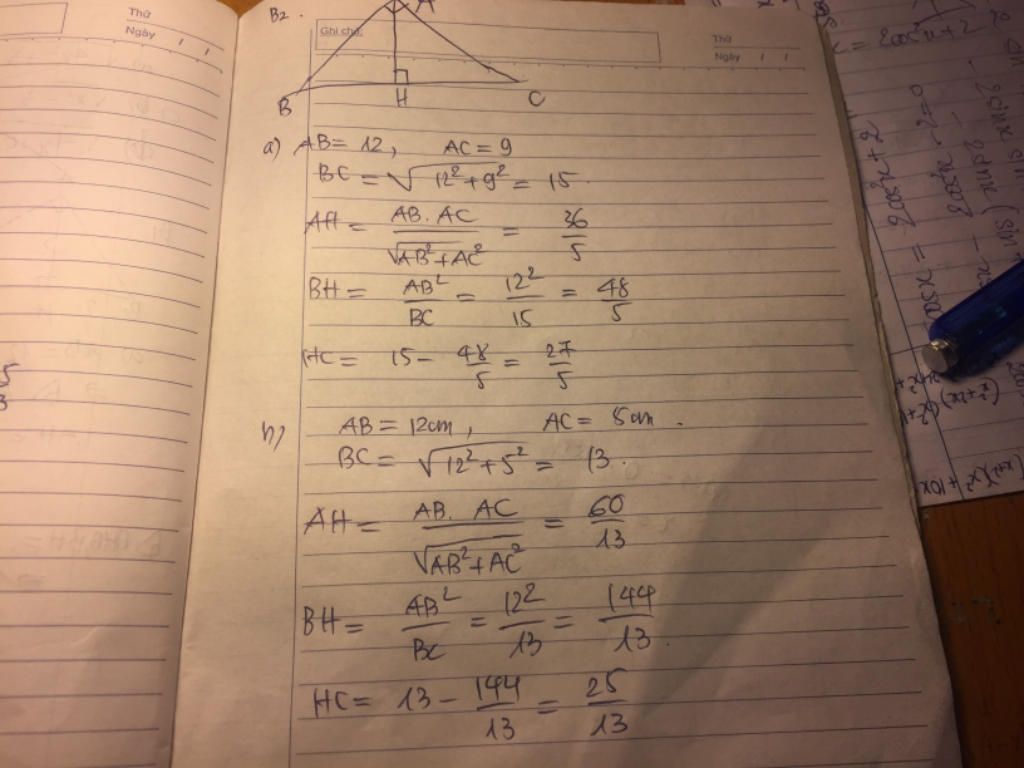 Thứ
Ngày / /
B2.
A
Ghi chú:
Thứ
Ngày / /
B H C
a) AB = 12, AC = 9
BC = √12² + 9² = 15.
AH = AB. AC / √AB² + AC² = 36/5
BH = AB²/BC = 12²/15 = 48/5
HC = 15 - 48/5 = 27/5
b) AB = 12cm, AC = 5cm.
BC = √12² + 5² = 13.
AH = AB. AC / √AB² + AC² = 60/13
BH = AB²/BC = 12²/13 = 144/13.
HC = 13 - 144/13 = 25/13